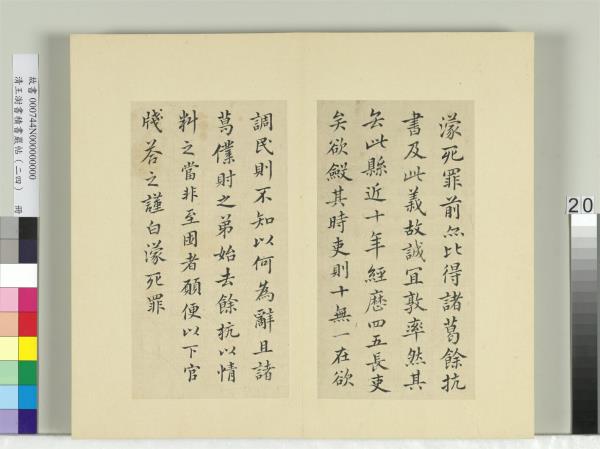 濛死罪前亦比得諸葛餘杭
書及此義故誠冝敦率然其
去此縣近十年經歷四五長吏
矣欲 其時吏則十無一在欲
調民則不知以何為辭且諸
葛僕射之弟始去餘杭以情
料之當非至困者願便以下官
牋荅之謹白濛死罪
故書 000744N000000000
清王澍書積書巖帖(二四) 冊
20